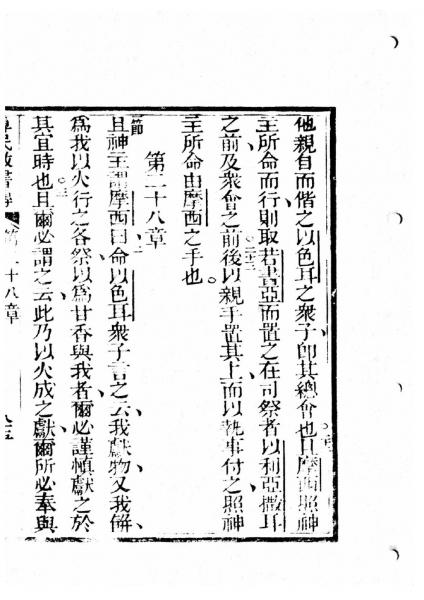 他親自而偕之以色耳之衆子即其總會也且摩西照神
主所命而行則取若書亞而置之在司祭者以利亞撒耳
之前及衆會之前後以親手置其上而以執事付之照神
主所命由摩西之手也
第二十八章
節且神主謂摩西曰命以色耳衆子言之云我獻物又我餅
為我以火行之各祭以為甘香與我者爾必謹慎獻之於
其宜時也且爾必謂之云此乃以火成之獻爾所必奉與
第二十八章